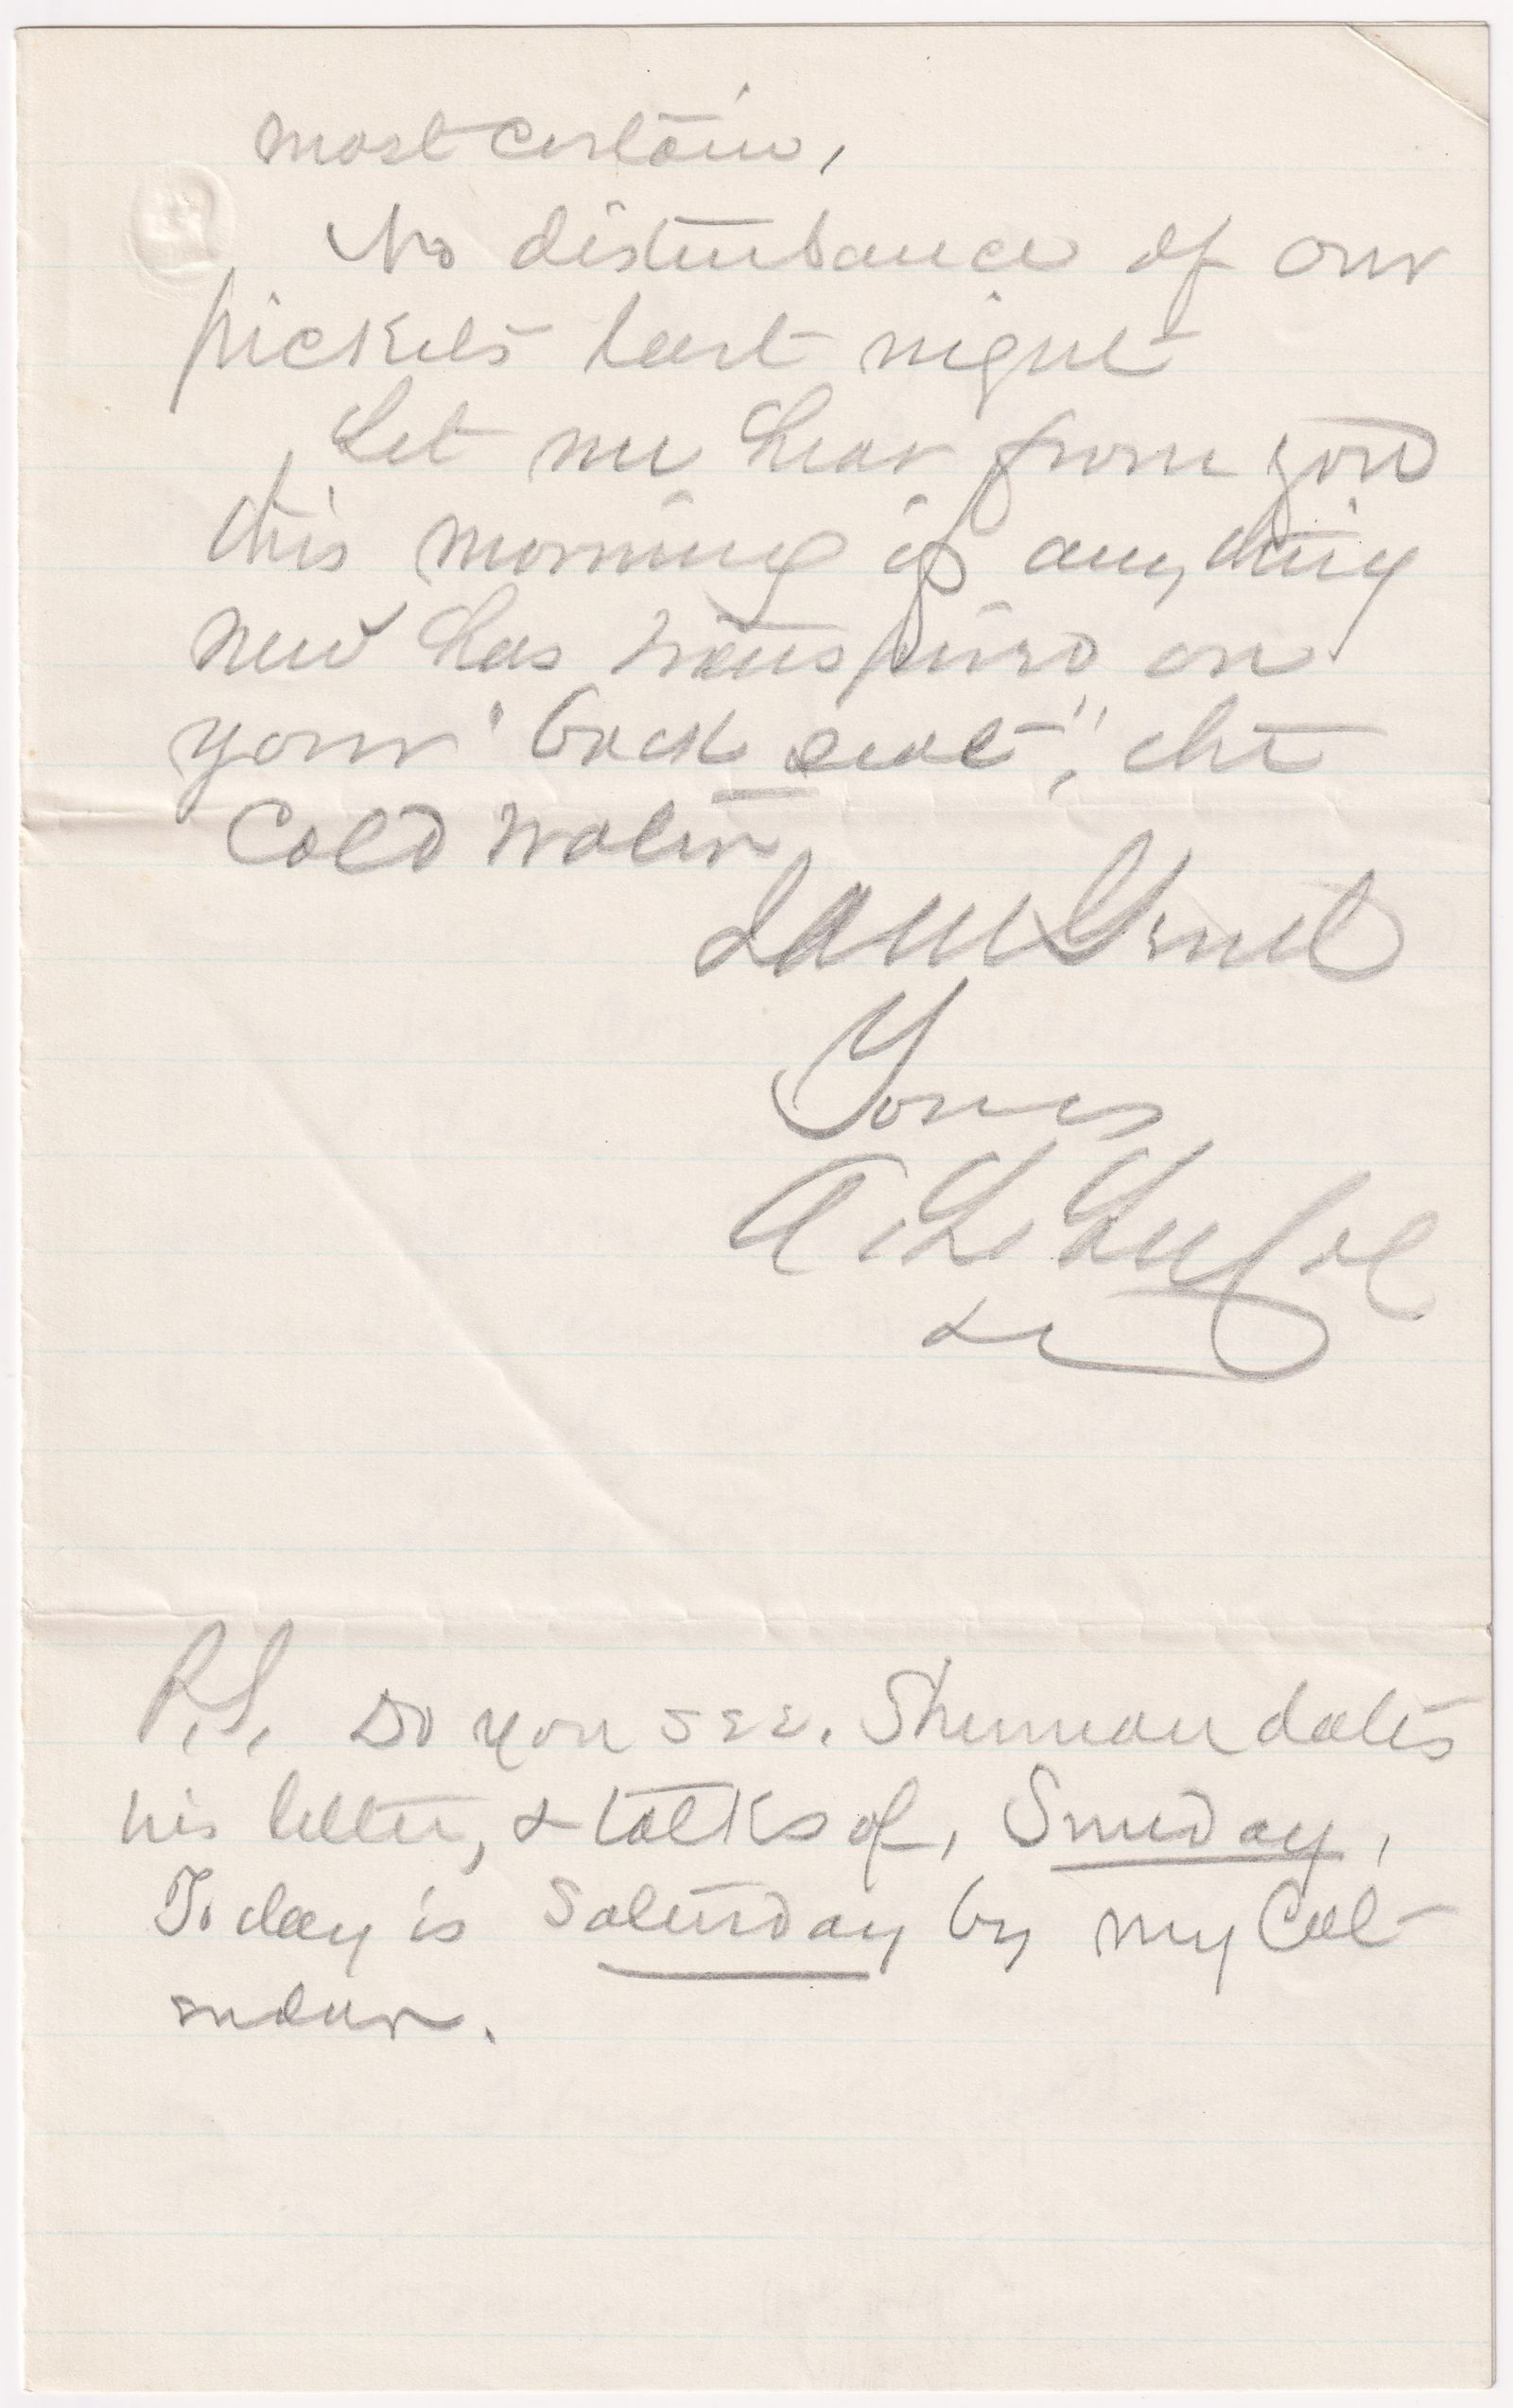 most certain,
No disturbance of our
pickets last night
Let me hear from you
this morning if any thing
new has transpired on
your "back seat", the
Cold Water
I am Genel
Yours
A. L. Lee
P.S. Do you see. Sherman dates
his letter, & talks of, Sunday,
To day is Saturday by my Cal-
endar.